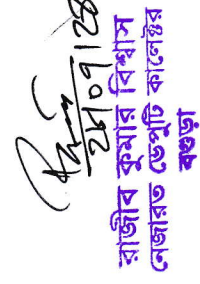 ২৮/০৭/২৪
রাজীব কুমার বিশ্বাস
নেজারত ডেপুটি কালেক্টর
বগুড়া